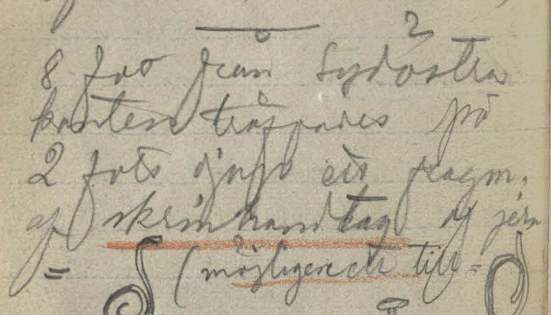 2
8 fot från Sydöstra
kanten träffades på
2 fots djup ett fragm.
af skrinhandtag af jern
= (möjligen ett till =